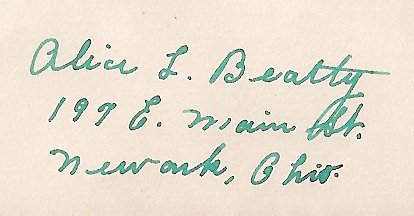 Alice L. Beatty
197 E. Main St.
Newark, Ohio.